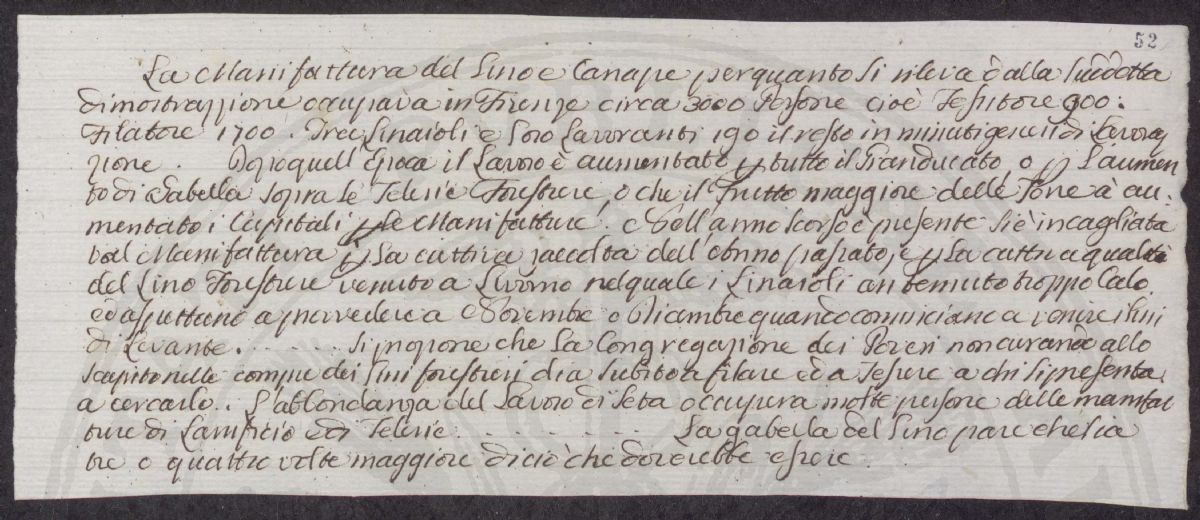 52
La Manifattura del Lino e Canape per quanto si rileva dalla suddetta
dimostrazzione occupava in Firenze circa 3000 Persone cioè Tessitore 900:
Filatore 1700. Trec Linaioli e Loro Lavoranti 190 il resto in minuti di Lavora
zione. Dopo quell'Epoca il Lavoro è aumentato p tutto il Granducato o p L'aumen
to di Gabella sopra le Telerie Forestiere, o che il Frutto maggiore delle Terre à au-
mentato i Capitali p Le Manifatture. e dell'anno scorso e presente si è incagliata
tal Manifattura p La cattiva raccolta dell'Anno passato, e p La cattiva qualità
del Lino Forestiere venuto a Livorno nel quale i Linaioli an temuto troppo Calo
ed aspettono a provedere a Novembre o Dicembre quando cominciano a venire i lini
di Levante. Si propone che La Congregazione dei Poveri non curando allo
scapito nelle compre dei Lini forestieri dia subito a filare ed a Tesere a chi si presenta
a cercarlo. L'abbondanza del Lavoro di Seta occupera molte persone delle manifat
ture di Lanificio e di Telerie. La gabella del Lino pare che sia
tre o quattro volte maggiore di ciò che doverebbe essere.